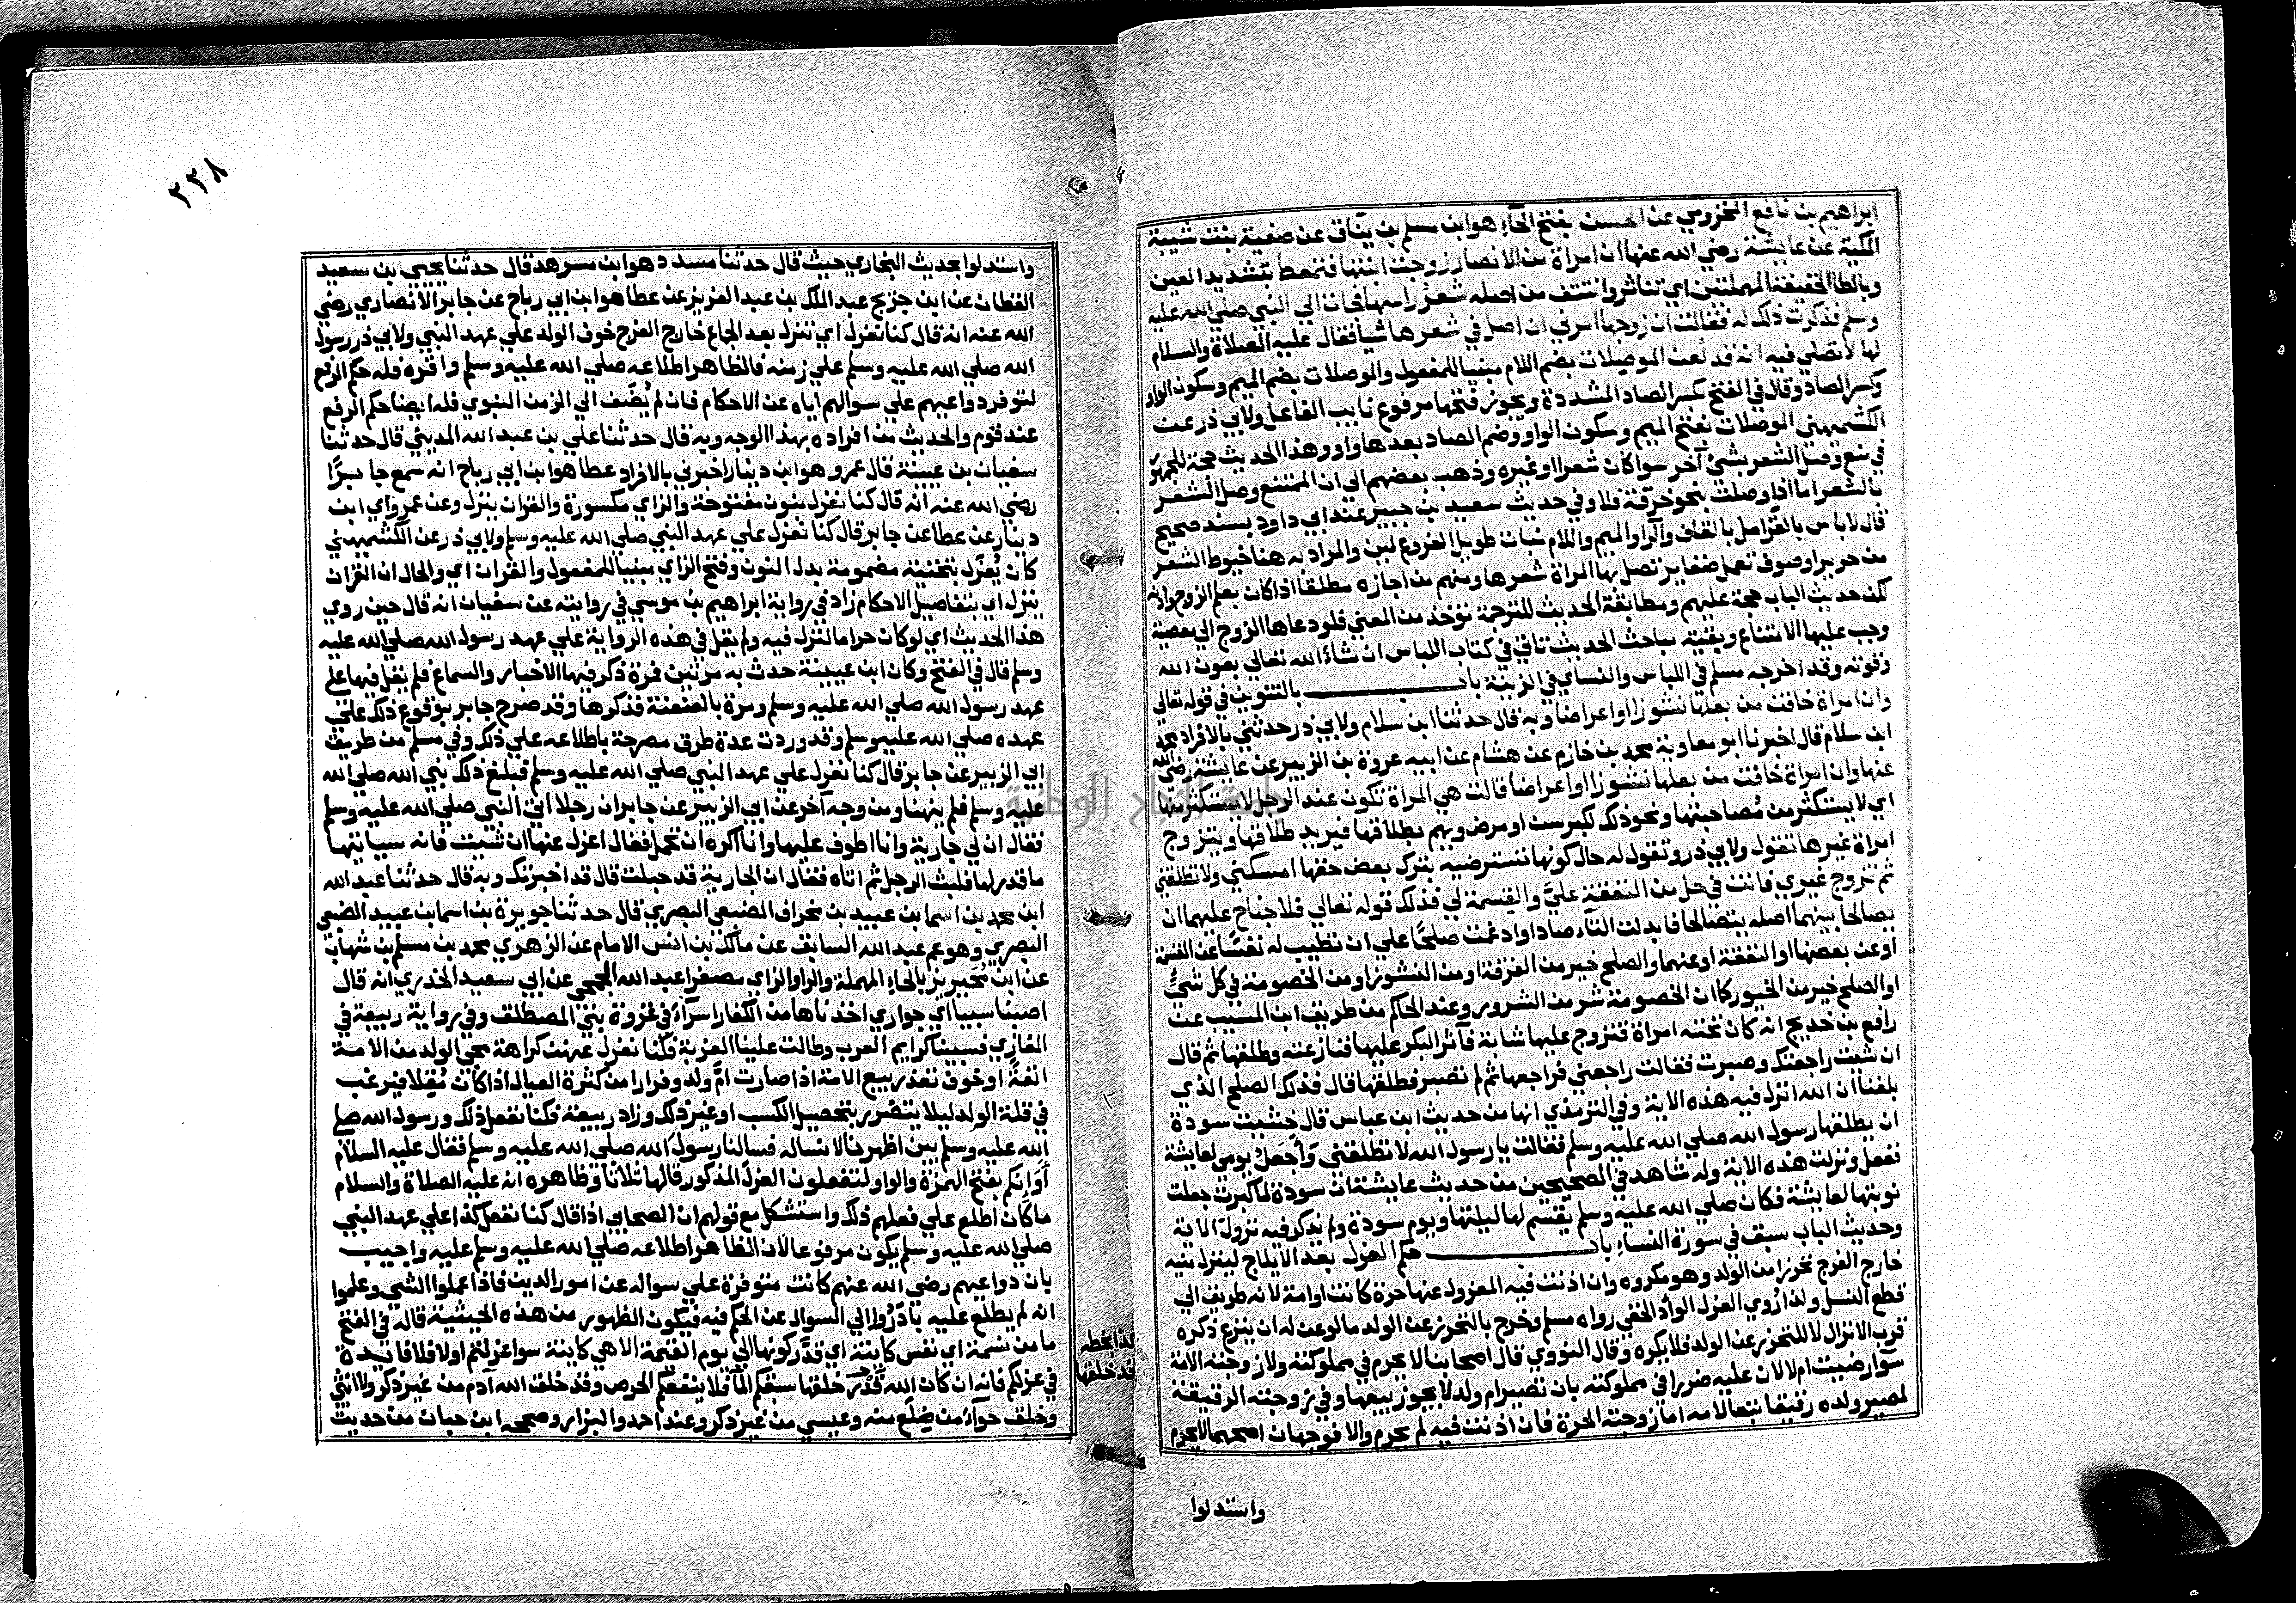 ابراهيم بن نافع المخزومي عن الحسن بفتح الحآء هو ابن مسلم بن يناق عن صفية بنت شيبة
المكية عن عايشة رضي الله عنها ان امراة من الانصار زوجت ابنتها فتمعط بتشديد العين
وبالطا الخفيفة المهملتين اي تناثر وانتتف من اصله شعر راسها فجات الي النبي صلي الله عليه
وسلم فذكرت ذلك له فقالت ان زوجها امرني ان اصل في شعرها شيا فقال عليه الصلاة والسلام
لها لا تصلي فيه انه قد لعن الموصلات بضم اللام مبنيا للمفعول والموصلات بضم الميم وسكون الواو
وكسر الصاد وقال في الفتح بكسر الصاد المشددة ويجوز فتحها مرفوع نايب الفاعل ولابي ذر عن
الكشميهني الموصلات بفتح الميم وسكون الواو وضم الصاد بعدها واو وهذا الحديث حجة للجمهور
في منع وصل الشعر بشئ آخر سوا كان شعرا او غيره وذهب بعضهم الي ان الممتنع وصل الشعر
بالشعر اما اذا وصلت بنحو خرقة فلا وفي حديث سعيد بن جبير عند ابي داود بسند صحيح
قال لا باس بالقرامل بالقاف والرا والميم واللام نبات طويل الفروع لين والمراد به هنا خيوط الشعر
من حرير او صوف تعمل ضفاير تصل بها المراة شعرها ومنهم من اجازه مطلقا اذا كان بعلم الزوج واذنه
لكن حديث الباب حجة عليهم ومطابقة الحديث للترجمة توخذ من المعني فلو دعاها الزوج الي معصية
وجب عليها الامتناع وبقية مباحث الحديث تاتي في كتاب اللباس ان شاء الله تعالي بعون الله
وقوته وقد اخرجه مسلم في اللباس والنساي في الزينة باب بالتنوين في قوله تعالي
وان امراة خافت من بعلها نشوزا او اعراضا وبه قال حدثنا ابن سلام ولابي ذر حدثني بالافراد محمد
ابن سلام قال اخبرنا ابو معاوية محمد بن خازم عن هشام عن ابيه عروة بن الزبير عن عايشة رضي الله
عنها وان امراة خافت من بعلها نشوزا او اعراضا قالت هي المراة تكون عند الرجل لا يستكثر منها
اي لا يستكثر من مصاحبتها ونحو ذلك لكبر سن او مرض ويهم بطلاقها فيريد طلاقها ويتزوج
امراة غيرها تقول ولابي ذر وتقول له حال كونها تسترضيه بترك بعض حقها امسكني ولا تطلقني
ثم تزوج غيري فانت في حل من النفقة علي والقسمة لي فذلك قوله تعالي فلا جناح عليهما ان
يصالحا بينهما اصله يتصالحا فابدلت التاء صادا وادغمت صلحا علي ان تطيب له نفسا عن القسمة
او عن بعضها او النفقة او عنهما والصلح خير من الفرقة او من النشوز او من الخصومة في كل شئ
او الصلح خير من الخيور كما ان الخصومة شر من الشرور وعند الحاكم من طريق ابن المسيب عن
رافع بن خديج انه كان تحته امراة فتزوج عليها شابة فآثر البكر عليها فنازعته وطلقها ثم قال
ان شيت راجعتك وصبرت فقالت راجعني فراجعها ثم لم تصبر فطلقها قال فذلك الصلح الذي
بلغنا ان الله انزل فيه هذه الاية وفي الترمذي انها من حديث ابن عباس قال خشيت سودة
ان يطلقها رسول الله صلي الله عليه وسلم فقالت يا رسول الله لا تطلقني واجعل يومي لعايشة
ففعل ونزلت هذه الاية وله شاهد في الصحيحين من حديث عايشة ان سودة لما كبرت جعلت
نوبتها لعايشة فكان صلي الله عليه وسلم يقسم لها ليلتها ويوم سودة ولم يذكر فيه نزول الاية
وحديث الباب سبق في سورة النساء باب حكم العزل بعد الايلاج لينزل منيه
خارج الفرج تحرزا من الولد وهو مكروه وان اذنت فيه المعزول عنها حرة كانت او امة لانه طريق الي
قطع النسل ولذا روي العزل الوأد الخفي رواه مسلم وخرج بالتحرز عن الولد ما لو عن له ان ينزع ذكره
قرب الانزال لا للتحرز عن الولد فلا يكره وقال النووي قال اصحابنا لا يحرم في مملوكته ولا زوجته الامة
سوآ رضيت ام لا لان عليه ضررا في مملوكته بان تصير ام ولد لا يجوز بيعها وفي زوجته الرقيقة
لمصير ولده رقيقا تبعا لامه اما زوجته الحرة فان اذنت فيه لم يحرم والا فوجهان اصحهما لا يحرم
واستدلوا
٢٣٨
واستدلوا بحديث البخاري حيث قال حدثنا مسدد هو ابن مسرهد قال حدثنا يحيي بن سعيد
القطان عن ابن جريج عبد الملك بن عبد العزيز عن عطا هو ابن ابي رباح عن جابر الانصاري رضي
الله عنه انه قال كنا نعزل اي ننزل بعد الجماع خارج الفرج خوف الولد علي عهد النبي ولابي ذر رسول
الله صلي الله عليه وسلم علي زمنه فالظاهر اطلاعه صلي الله عليه وسلم واقره فله حكم الرفع
لتوفر دواعيهم علي سوالهم اياه عن الاحكام فان لم يُضَف الي الزمن النبوي فله ايضا حكم الرفع
عند قوم والحديث من افراده بهذا الوجه وبه قال حدثنا علي بن عبد الله المديني قال حدثنا
سفيان بن عيينة قال عمرو هو ابن دينار اخبرني بالافراد عطا هو ابن ابي رباح انه سمع جابرًا
رضي الله عنه انه قال كنا نعزل بنون مفتوحة والزاي مكسورة والقران ينزل وعن عمرو اي ابن
دينار عن عطا عن جابر قال كنا نعزل علي عهد النبي صلي الله عليه وسلم ولابي ذر عن الكشميهني
كان يُعزَل بتحتية مضمومة بدل النون وفتح الزاي مبنيا للمفعول والقران اي والحال ان القران
ينزل اي بتفاصيل الاحكام زاد في رواية ابراهيم بن موسي في روايته عن سفيان انه قال حين روي
هذا الحديث اي لو كان حراما لنزل فيه ولم يقل في هذه الرواية علي عهد رسول الله صلي الله عليه
وسلم قال في الفتح وكان ابن عيينة حدث به مرتين فمرة ذكر فيها الاخبار والسماع فلم يقل فيها علي
عهد رسول الله صلي الله عليه وسلم ومرة بالعنعنة فذكرها وقد صرح جابر بوقوع ذلك علي
عهده صلي الله عليه وسلم وقد وردت عدة طرق مصرحة باطلاعه علي ذلك وفي مسلم من طريق
ابي الزبير عن جابر قال كنا نعزل علي عهد النبي صلي الله عليه وسلم فبلغ ذلك نبي الله صلي الله
عليه وسلم فلم ينهنا ومن وجه آخر عن ابي الزبير عن جابر ان رجلا اتي النبي صلي الله عليه وسلم
فقال ان لي جارية وانا اطوف عليها وانا اكره ان تحمل فقال اعزل عنها ان شيت فانه سياتيها
ما قدر لها فلبث الرجل ثم اتاه فقال ان الجارية قد حبلت قال قد اخبرتك وبه قال حدثنا عبد الله
ابن محمد بن اسما ابن عبيد بن مخراق الضبعي البصري قال حدثنا جويرة بن اسما بن عبيد الضبعي
البصري وهو عم عبد الله السابق عن مالك بن انس الامام عن الزهري محمد بن مسلم بن شهاب
عن ابن محيريز بالحاء المهملة والرا والزاي مصغرا عبد الله الجمحي عن ابي سعيد الخدري انه قال
اصبنا سبيا اي جواري اخذناها من الكفار اسرآء في غزوة بني المصطلق وفي رواية ربيعة في
المغازي فسبينا كرايم العرب وطالت علينا العزبة فكنا نعزل عنهن كراهة مجي الولد من الامة
انفةً او خوف تعذر بيع الامة اذا صارت امَّ ولد وفرارا من كثرة العيال اذا كان مُقِلا فيرغب
في قلة الولد ليلا يتضرر بتحصيل الكسب او غير ذلك وزاد ربيعة فكنا نفعل ذلك ورسول الله صلي
الله عليه وسلم بين اظهرنا لا نساله فسالنا رسول الله صلي الله عليه وسلم فقال عليه السلام
أَوَانكم بفتح الهمزة والواو لتفعلون العزل المذكور قالها ثلاثا وظاهره انه عليه الصلاة والسلام
ما كان اطلع علي فعلهم ذلك واستشكل مع قولهم ان الصحابي اذا قال كنا نفعل كذا علي عهد النبي
صلي الله عليه وسلم يكون مرفوعا لان الظاهر اطلاعه صلي الله عليه وسلم عليه واجيب
بان دواعيهم رضي الله عنهم كانت متوفرة علي سواله عن امور الدين فاذا عملوا الشي وعلموا
انه لم يطلع عليه بادَرُوا الي السوال عن الحكم فيه فيكون الظهور من هذه الحيثية قاله في الفتح
ما من نسمة اي نفس كاينة اي قدَّر كونها الي يوم القيمة الا هي كاينة سوا عزلتم او لا فلا فايدة
في عزلكم فانه ان كان الله قدَّر خلقها سبقكم المآ فلا ينفعكم الحرص وقد خلق الله آدم من غير ذكر ولا انثي
وخلق حوآء من ضِلَع منه وعيسي من غير ذكر وعند احمد والبزار وصححه ابن حبان من حديث
كذا بخطه
قد خلقها
جامعة النجاح الوطنية